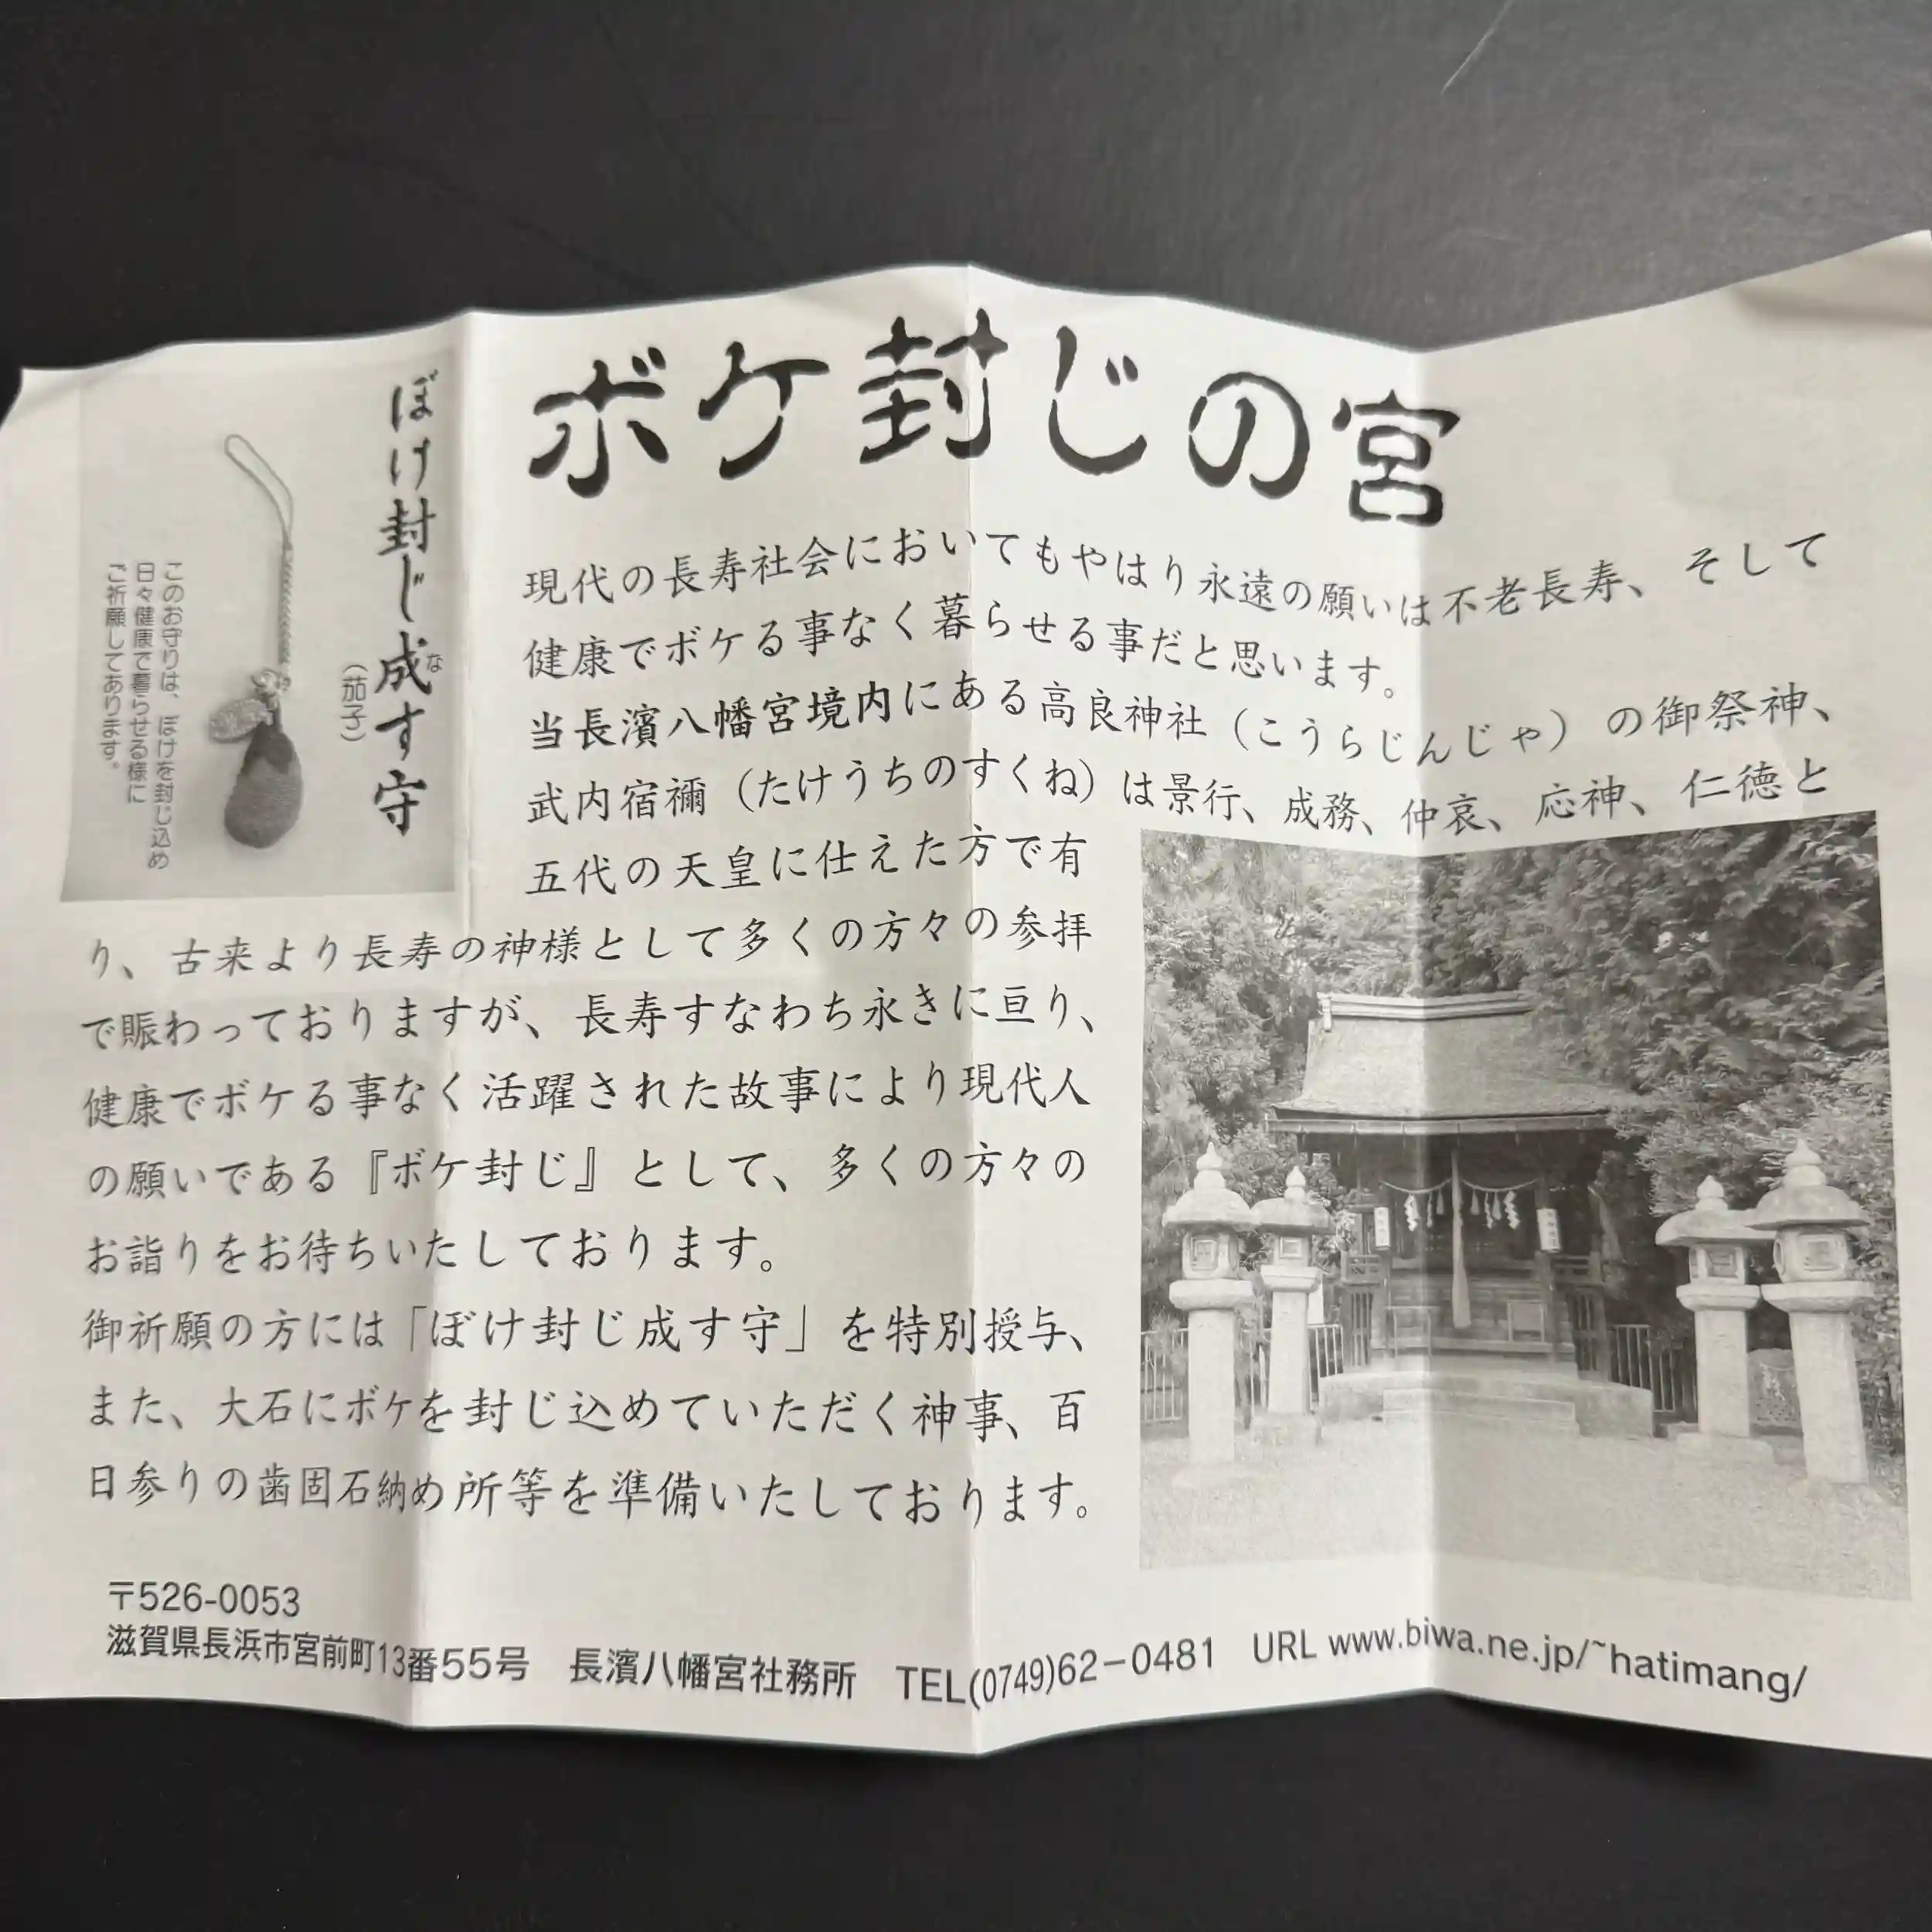 ボケ封じの宮
ぼけ封じ成す守
な
（茄子）
このお守りは、ぼけを封じ込め
日々健康で暮らせる様に
ご祈願してあります。
現代の長寿社会においてもやはり永遠の願いは不老長寿、そして
健康でボケる事なく暮らせる事だと思います。
当長濱八幡宮境内にある高良神社（こうらじんじゃ）の御祭神、
武内宿禰（たけうちのすくね）は景行、成務、仲哀、応神、仁徳と
五代の天皇に仕えた方で有
り、古来より長寿の神様として多くの方々の参拝
で賑わっておりますが、長寿すなわち永きに亘り、
健康でボケる事なく活躍された故事により現代人
の願いである『ボケ封じ』として、多くの方々の
お詣りをお待ちいたしております。
御祈願の方には「ぼけ封じ成す守」を特別授与、
また、大石にボケを封じ込めていただく神事、百
日参りの歯固石納め所等を準備いたしております。
〒526-0053
滋賀県長浜市宮前町13番55号　長濱八幡宮社務所　TEL(0749)62-0481　URL www.biwa.ne.jp/~hatimang/